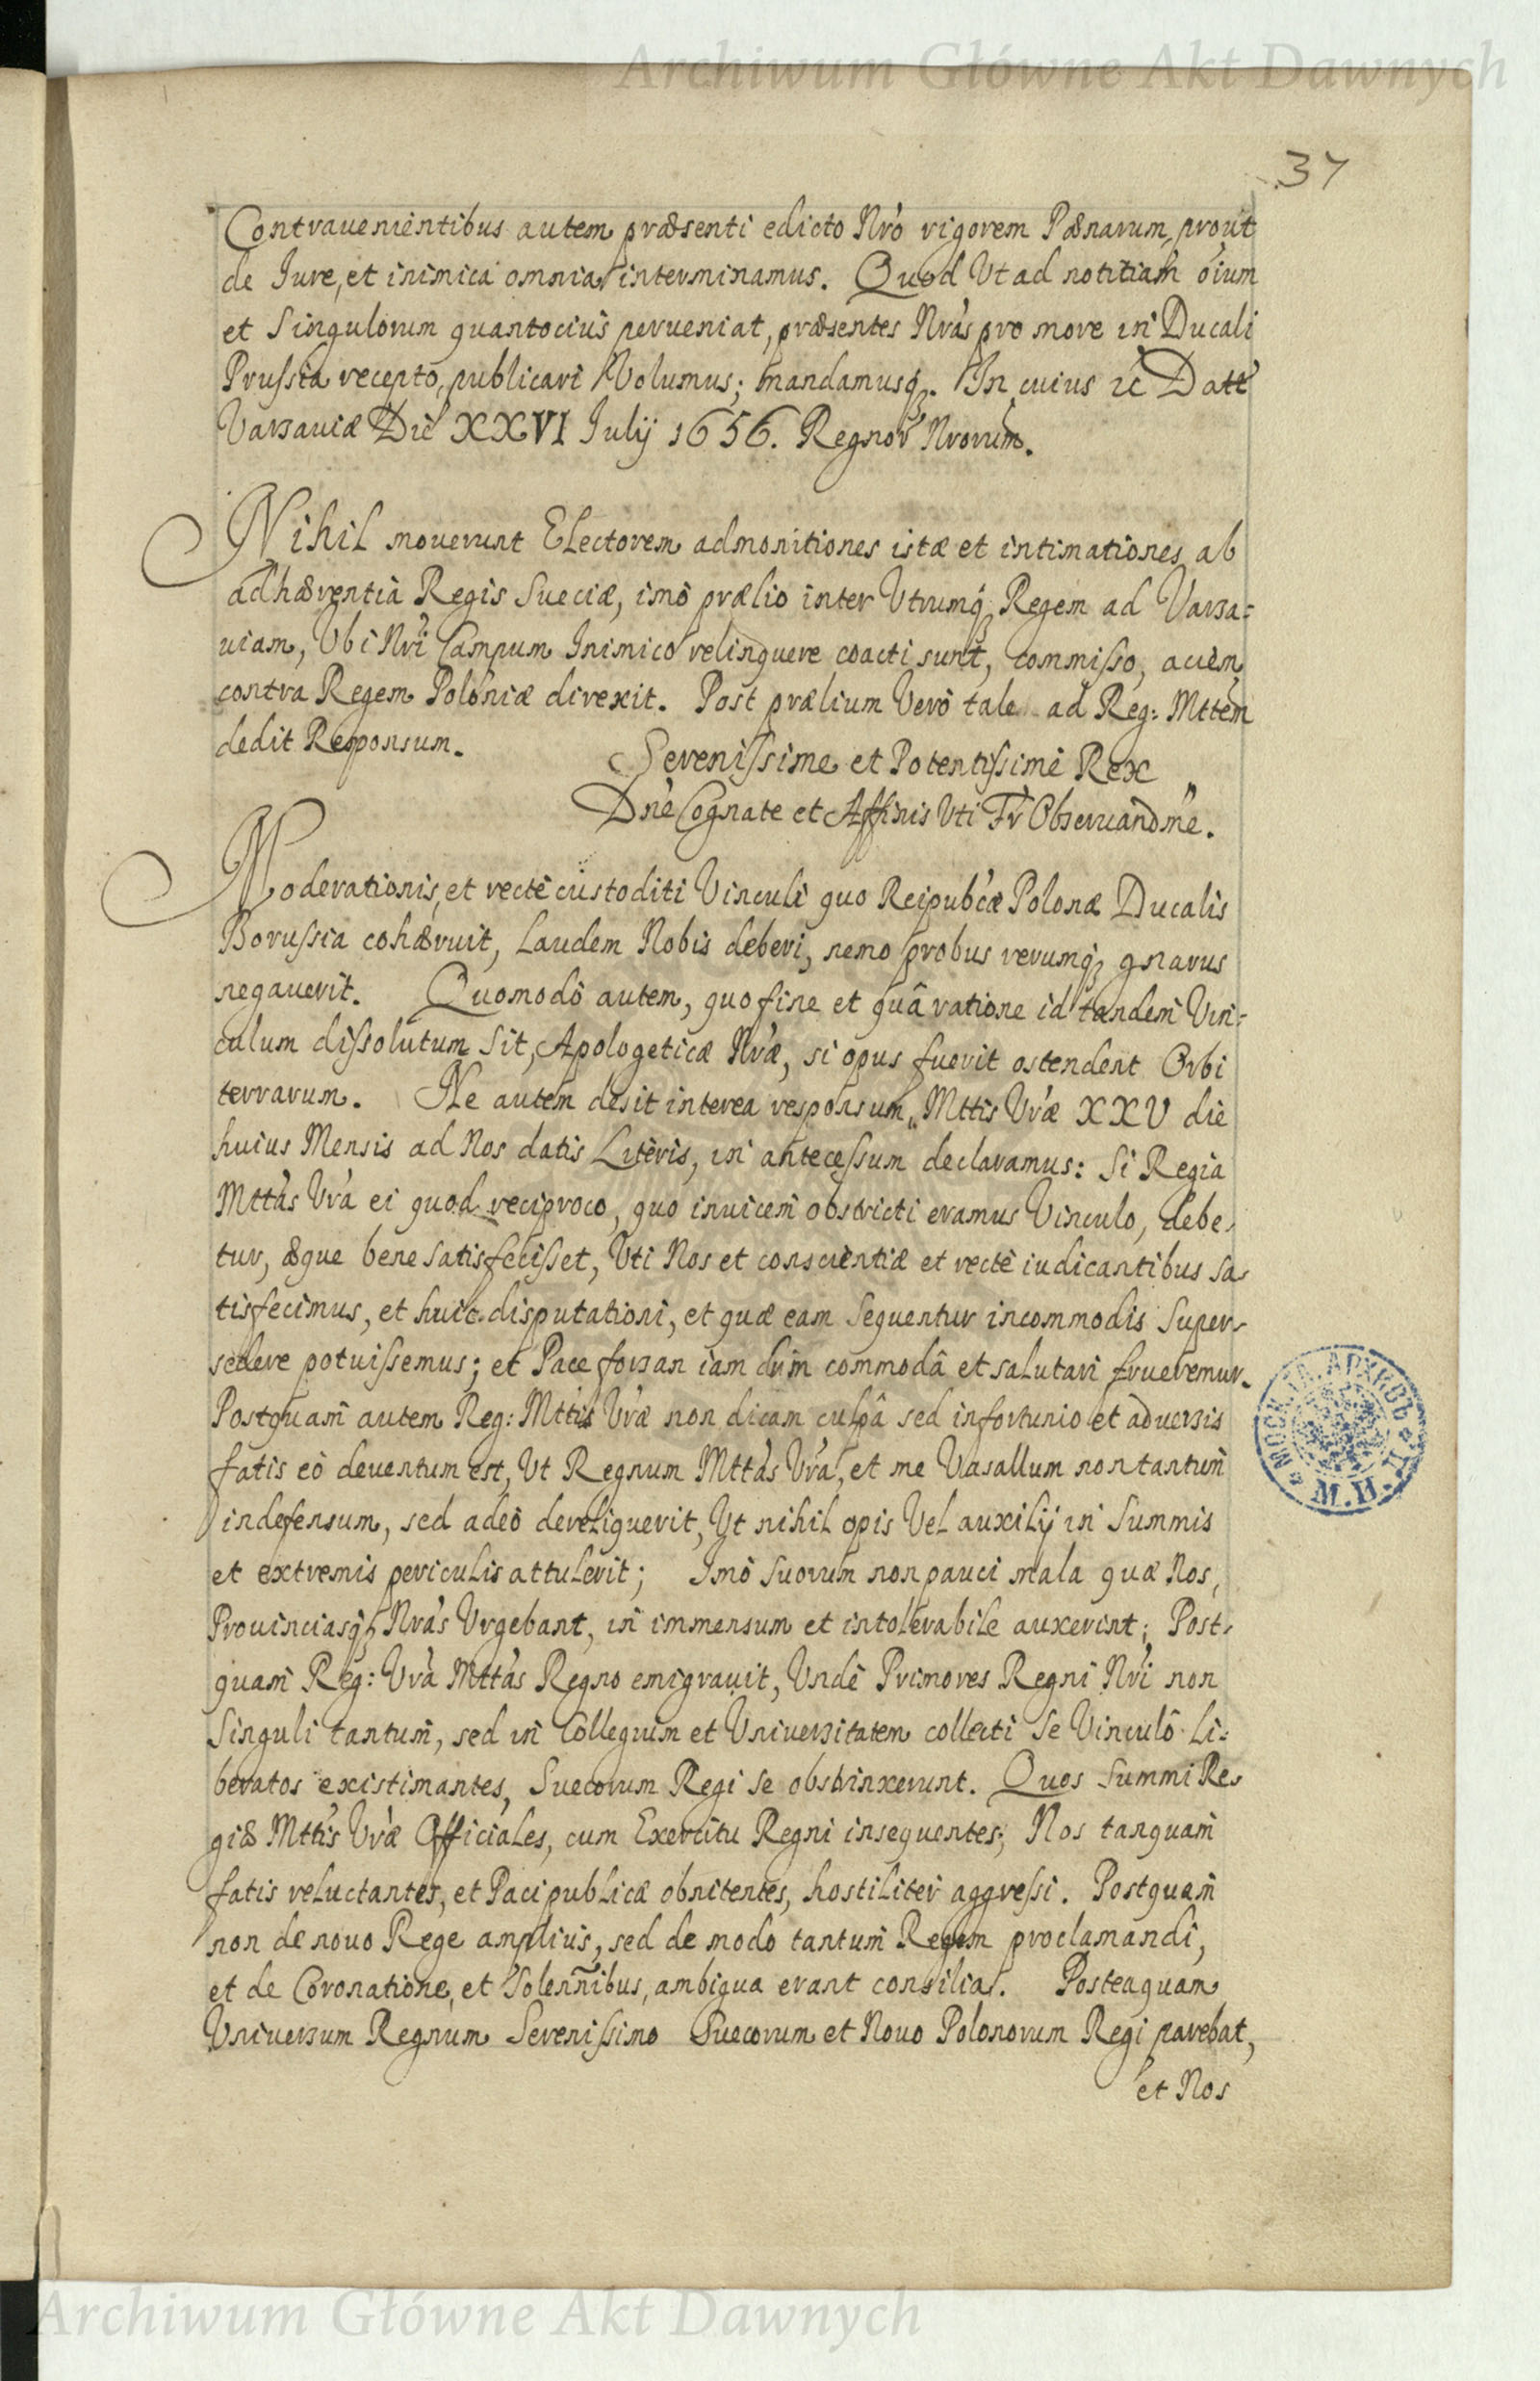 Archiwum Główne Akt Dawnych
37
Contrauenientibus autem præsenti edicto Nr̃o rigorem Pænarum, prout
de Iure, et inimica omnia interminamus. Quod Vt ad notitiam oĩum
et Singulorum quantociùs perueniat, præsentes Nr̃as pro more in Ducali
Prussia recepto, publicari Volumus; mandamusq₃. In cuius ꝛc Datt
Varsauiæ Die XXVI Iulij 1656. Regnor̃ Nrorum.
Nihil mouerunt Electorem admonitiones istæ et intimationes ab
adhærentia Regis Sueciæ, imò prælio inter Vtrumq₃ Regem ad Varsa=
uiam, Vbi Nr̃i Campum Inimico relinquere coacti sunt, commisso, aciem
contra Regem Poloniæ direxit. Post prælium Verò tale ad Reg: Mttem
dedit Responsum.
Serenissime et Potentissime Rex
Dn̄e Cognate et Affinis Vti Fr̃ Obseruandm̃e.
Moderationis, et rectè custoditi Vinculi quo Reipub̃cæ Polonæ Ducalis
Borussia cohæruit, Laudem Nobis deberi, nemo probus verumq₃ gnarus
negauerit. Quomodò autem, quo fine et quâ ratione id tandem Vin=
culum dissolutum Sit, Apologeticæ Nr̃æ, si opus fuerit ostendent Orbi
terrarum. Ne autem desit interea responsum, Mttis Vr̃æ XXV die
huius Mensis ad Nos datis Literis, in antecessum declaramus: Si Regia
Mttas Vr̃a ei quod reciproco, quo inuicem obstricti eramus Vinculo, debe-
tur, æque bene satisfecisset, Vti Nos et conscientiæ et rectè iudicantibus sa-
tisfecimus, et huic disputationi, et quæ eam Sequentur incommodis Super-
sedere potuissemus; et Pace forsan iam dum commodâ et salutari frueremur.
Postquam autem Reg: Mttis Vr̃æ non dicam culpâ sed infortunio et aduersis
fatis eò deuentum est, Vt Regnum Mttas Vr̃a, et me Vasallum non tantum
indefensum, sed adeò dereliquerit, Vt nihil opis Vel auxilij in Summis
et extremis periculis attulerit; Imò Suorum non pauci mala quæ Nos,
Prouinciasq₃ Nr̃as Vrgebant, in immensum et intolerabile auxerint; Post-
quam Reg: Vr̃a Mttas Regno emigrauit, Vndè Primores Regni Nr̃i non
Singuli tantum, sed in Collegium et Vniuersitatem collecti Se Vinculô Li=
beratos existimantes, Suecorum Regi se obstrinxerunt. Quos Summi Re-
giæ Mttis Vr̃æ Officiales, cum Exercitu Regni insequentes; Nos tanquam
fatis reluctantes, et Paci publicæ obnitentes, hostiliter aggressi. Postquam
non de nouo Rege amplius, sed de modo tantum Regem proclamandi,
et de Coronatione, et Solenñibus, ambigua erant consilia. Posteaquam
Vniuersum Regnum Serenissimo Suecorum et Nouo Polonorum Regi parebat,
et Nos
Archiwum Główne Akt Dawnych